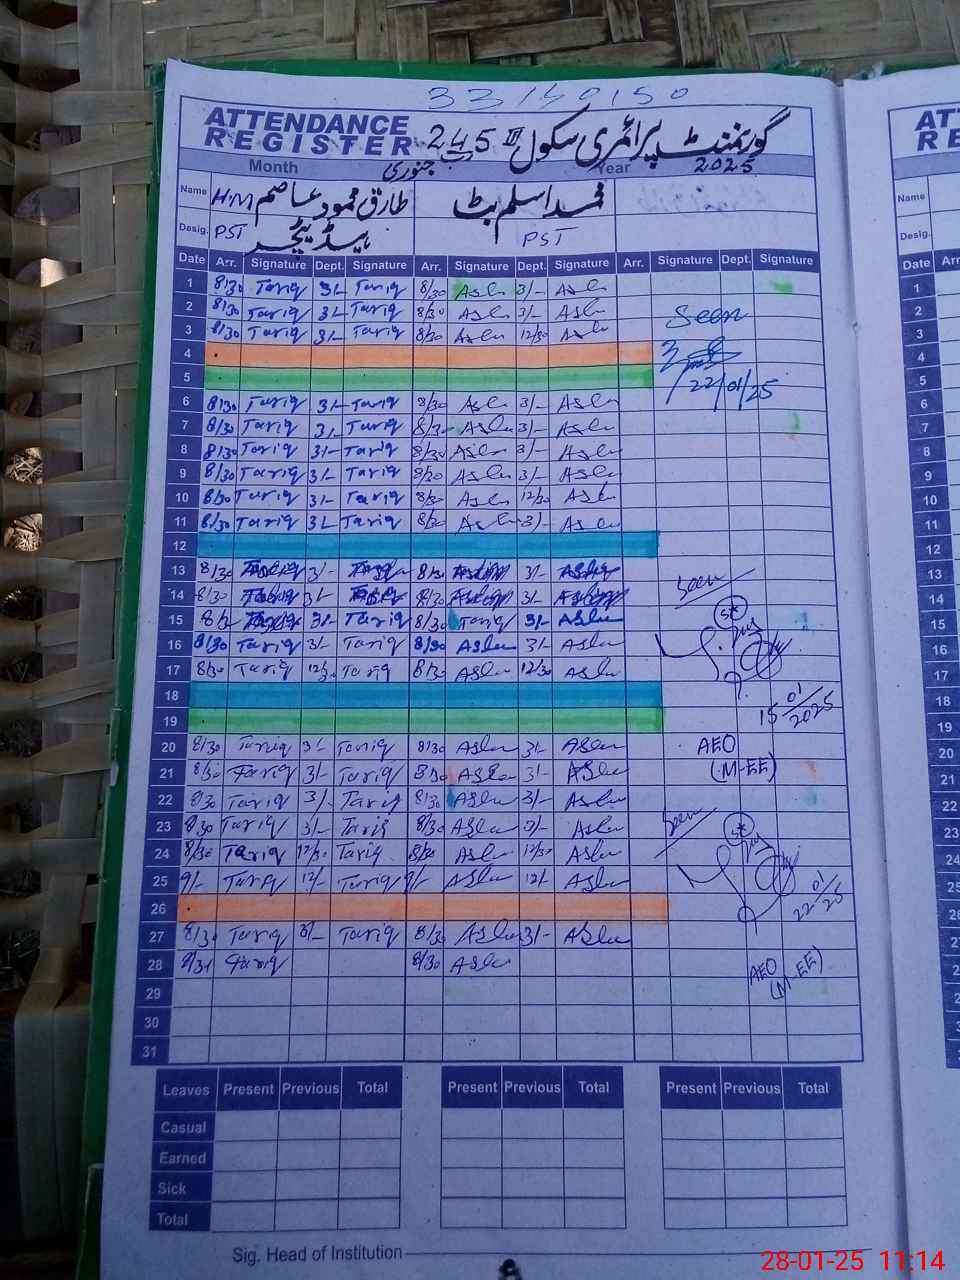 33140150
ATTENDANCE REGISTER گورنمنٹ پرائمری سکول 245 II
Month جنوری Year 2025
Name H.M طارق محمود عاصم محمد اسلم بٹ
Desig. PST ہیڈ ٹیچر PST
Date Arr. Signature Dept. Signature Arr. Signature Dept. Signature Arr. Signature Dept. Signature
1 8/30 Tariq 3/- Tariq 8/30 Aslm 3/- Aslm
2 8/30 Tariq 3/- Tariq 8/30 Aslm 3/- Aslm
3 8/30 Tariq 3/- Tariq 8/30 Aslm 12/30 Aslm
Seen
4
5
22/01/25
6 8/30 Tariq 3/- Tariq 8/30 Aslm 3/- Aslm
7 8/30 Tariq 3/- Tariq 8/30 Aslm 3/- Aslm
8 8/30 Tariq 3/- Tariq 8/30 Aslm 3/- Aslm
9 8/30 Tariq 3/- Tariq 8/30 Aslm 3/- Aslm
10 8/30 Tariq 3/- Tariq 8/30 Aslm 12/30 Aslm
11 8/30 Tariq 3/- Tariq 8/30 Aslm 3/- Aslm
12
13 8/30 3/- 8/30 3/-
14 8/30 3/- 8/30 3/-
Seen
15 8/30 3/- Tariq 8/30 Aslm 3/- Aslm
16 8/30 Tariq 3/- Tariq 8/30 Aslm 3/- Aslm
17 8/30 Tariq 12/30 Tariq 8/30 Aslm 12/30 Aslm
18
15/01/2025
19
20 8/30 Tariq 3/- Tariq 8/30 Aslm 3/- Aslm
AEO
21 8/30 Tariq 3/- Tariq 8/30 Aslm 3/- Aslm
(M-EE)
22 8/30 Tariq 3/- Tariq 8/30 Aslm 3/- Aslm
23 8/30 Tariq 3/- Tariq 8/30 Aslm 3/- Aslm
Seen
24 8/30 Tariq 12/30 Tariq 8/30 Aslm 12/30 Aslm
25 9/- Tariq 12/- Tariq 9/- Aslm 12/- Aslm
26
22/01/25
27 8/30 Tariq 3/- Tariq 8/30 Aslm 3/- Aslm
28 8/31 Tariq 8/30 Aslm
AEO
(M-EE)
29
30
31
Leaves Present Previous Total Present Previous Total Present Previous Total
Casual
Earned
Sick
Total
Sig. Head of Institution
28-01-25 11:14
Name
Desig.
Date
1
2
3
4
5
6
7
8
9
10
11
12
13
14
15
16
17
18
19
20
21
22
23
24
25